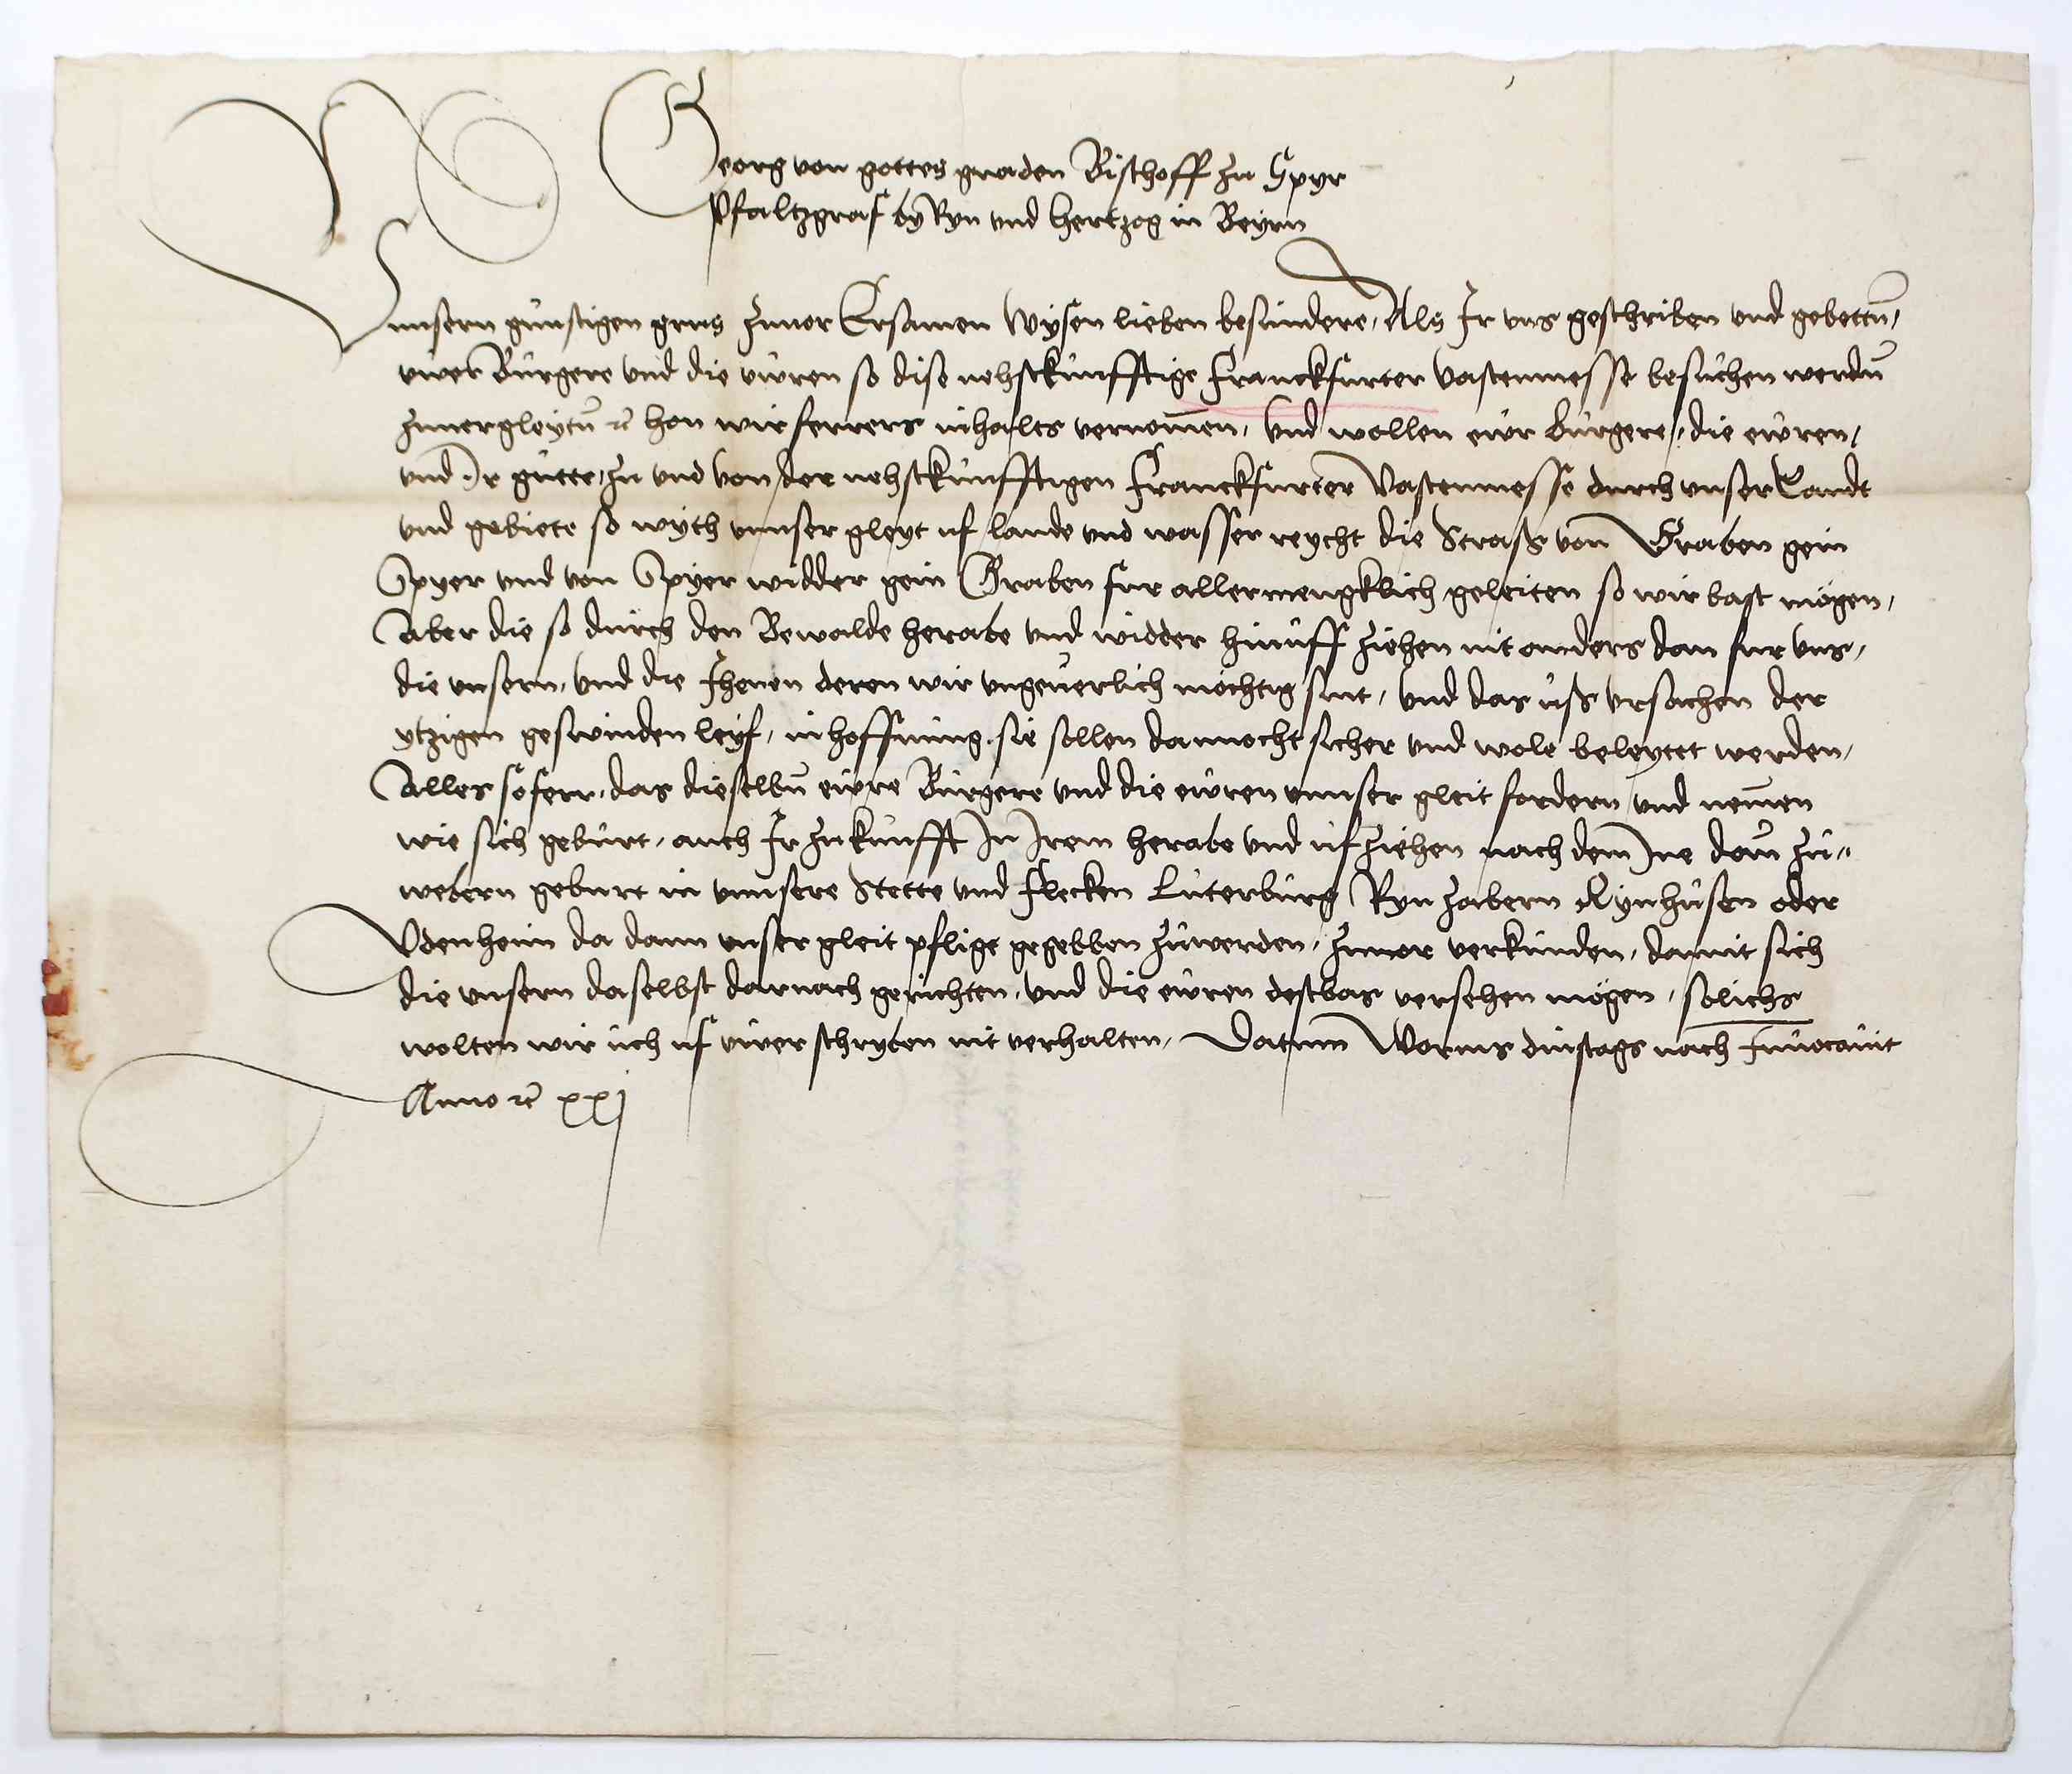 Georg von gottes gnaden Bischoff zu Spyr
Pfaltzgraf by Ryn vnd hertzog in Beyrn
Vnnsern gunstigen grus zuuor Ersamen Wysen lieben besundere, Als Ir vns geschriben vnd gebettn̄,
uwer Burgere vnd die uwren so dise nehstkunfftige Franckfurter Vastenmesse besuchen werdn̄
zuuergleytn̄ ꝛc̄ han wir ferrers inhalts vernom̄en, Vnd wollen ewr Burgere, die ewren,
vnd Ir gutte, zu vnd von der nehstkunfftigen Franckfurter Vastenmesse durch vnser Landt
vnd gebiete so wyth vnnser gleyt uf lande vnd wasser reycht die Strass von Graben gein
Spyer vnd von Spyer widder gein Graben fur allermengklich geleiten so wir bast mögen,
Aber die so durch den Bewalde herabe vnd widder hinuff ziehen nit anders dan fur vns,
die vnsern, vnd die Ihenen deren wir vngeuerlich mechtig sint, vnd das uß vrsachen der
ytzigen geswinden leyf, in hoffnung sie sollen dannocht sicher vnd wole beleytet werden,
Alles soferr, das dieselbn̄ ewre Burgere vnd die ewren vnnser gleit fordern vnd nem̄en
wie sich geburt, auch Ir zukunfft In Irem herabe vnd uf ziehen nach dem Ine dan̄ zu„
webern geburt in vnnsere Stette vnd Flecken Luterburg Ryn zabern Rynhusen oder
Vdenheim da dann vnser gleit pfligt gegebben zuwerden, zuuor verkunden, damit sich
die vnsern daselbst darnach gerichten, vnd die ewren destbas versehen mögen, solichs
wolten wir uch uf uwer schryben nit verhalten, Datum Worms dinstags nach Inuocauit
Anno ꝛc̄ xxj